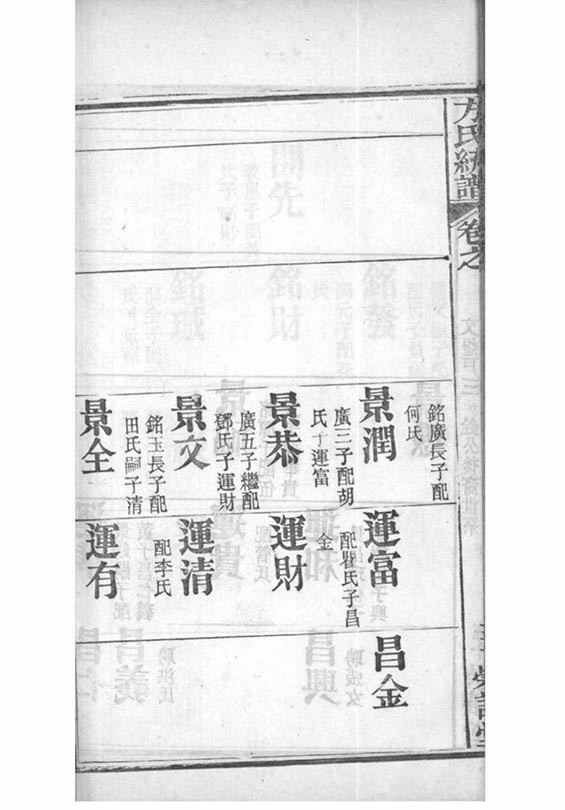 方氏統譜
卷之
銘廣長子配
何氏
景潤
廣三子配胡
氏子運富
景恭
廣五子繼配
鄧氏子運財
景文
銘玉長子配
田氏嗣子清
景全
運富
配瞿氏子昌
金
運財
運清
配李氏
運有
昌金